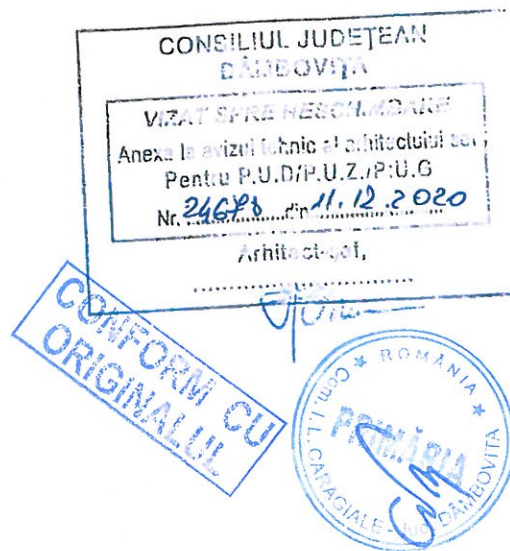 CONSILIUL JUDEȚEAN
DÂMBOVIȚA
VIZAT SPRE NESCHIMBARE
Anexa la avizul tehnic al arhitectului șef,
Pentru P.U.D/P.U.Z./P.U.G
Nr. din 11.12.2020
Arhitect-șef,
CONFORM CU
ORIGINALUL
★ ROMÂNIA ★
Com. I. L. CARAGIALE - Jud. DÂMBOVIȚA
PRIMĂRIA